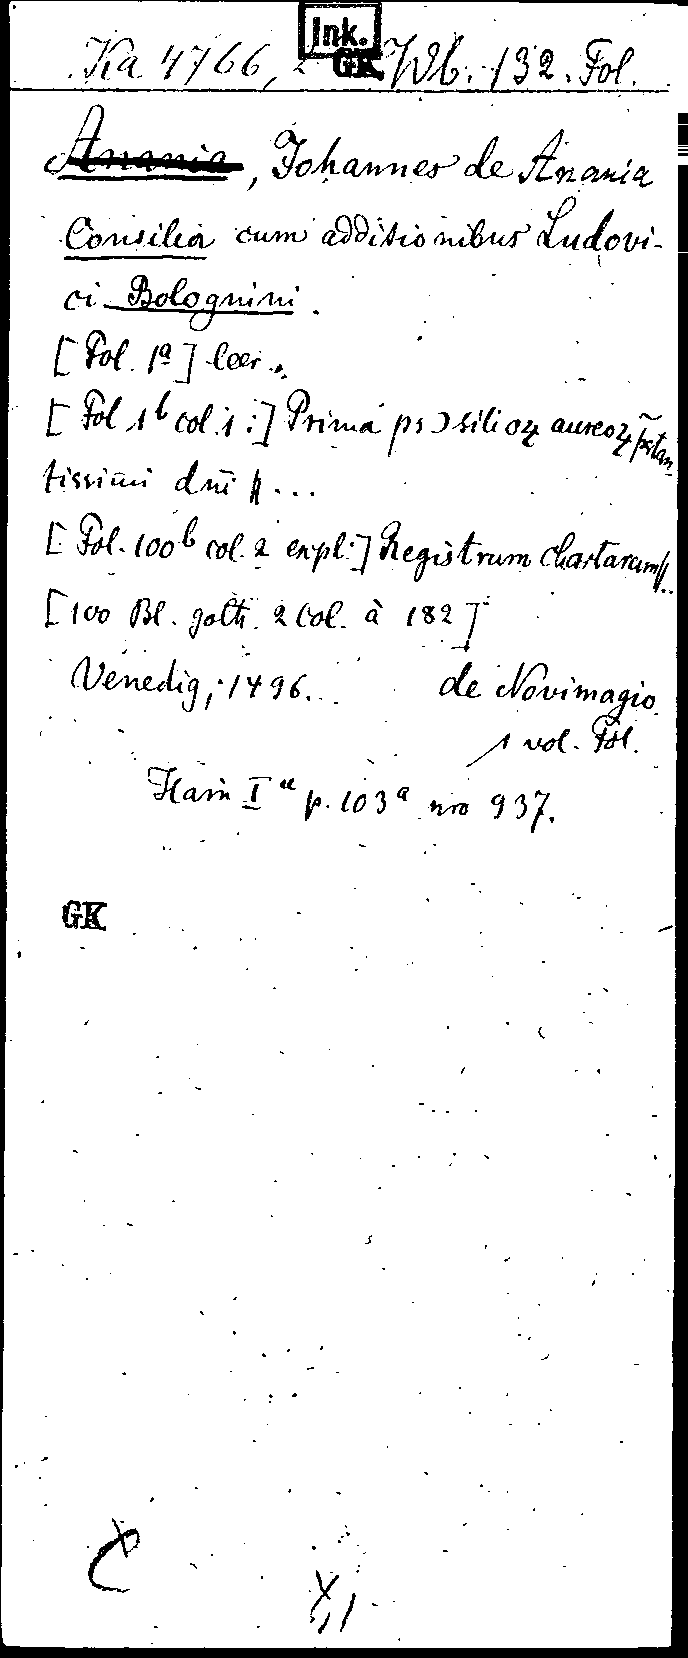 Ink.
Ka 4766, 2 GK Wb. 132. Fol.
Anania, Johannes de Anania
Consilia cum additionibus Ludovi-
ci Bolognini.
[Fol. 1a] leer.
[Fol 1b col. 1:] Prima ps ɔsilioꝝ aureoꝝ p̃stan-
tissimi dn̄i ∥ ...
[Fol. 100b col. 2 expl:] Registrum chartarum ∥..
[100 Bl. goth. 2 col. à 182]
Venedig, 1496. de Novimagio
1 vol. Fol.
Hain I p. 103a nro 937.
GK